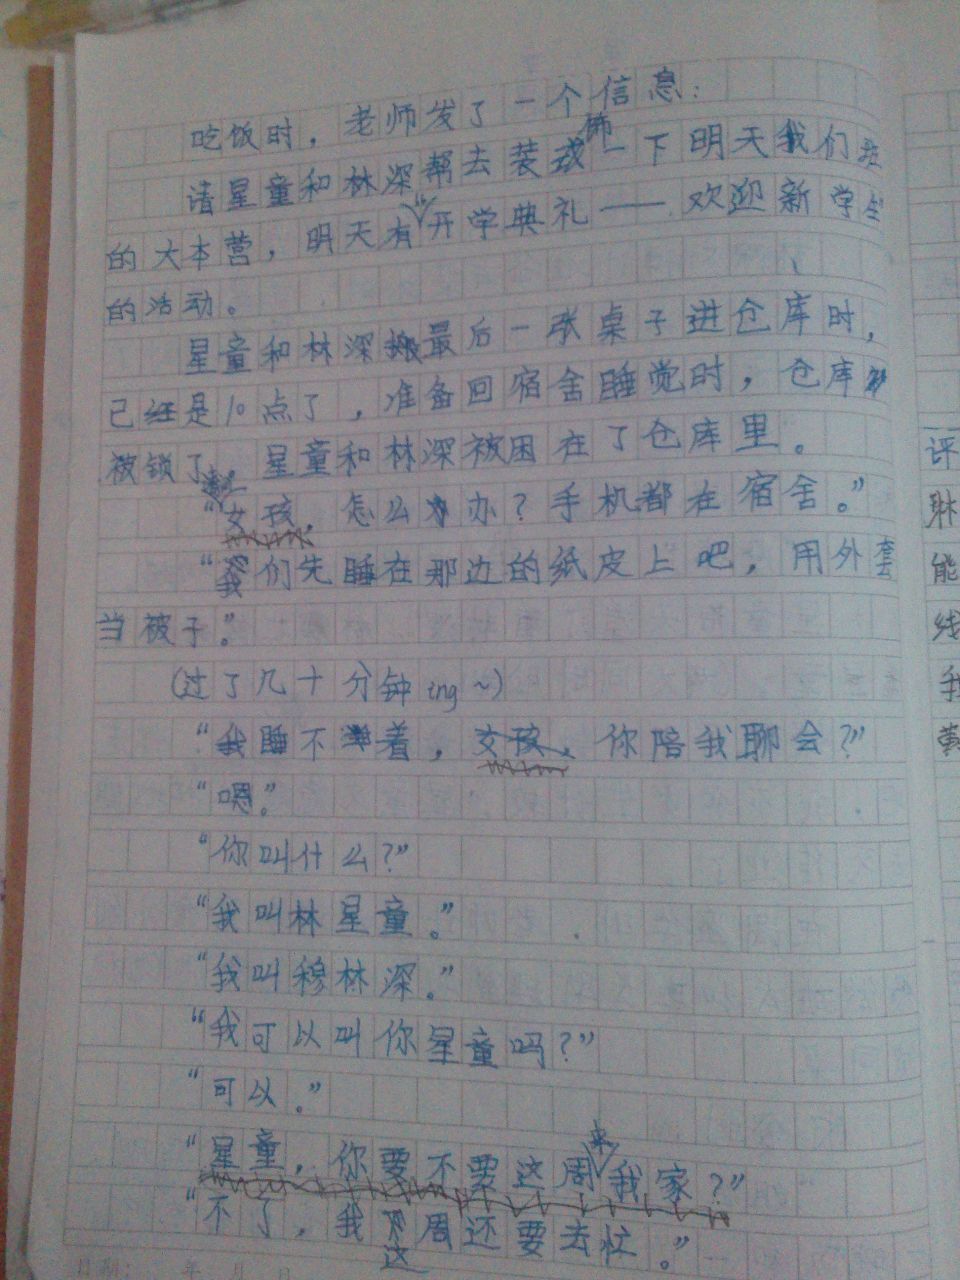 吃饭时，老师发了一个信息：
请星童和林深帮去装饰一下明天我们班
的大本营，明天有开学典礼——欢迎新学生
的活动。
星童和林深搬最后一张桌子进仓库时，
已经是10点了，准备回宿舍睡觉时，仓库
被锁了。星童和林深被困在了仓库里。
“女孩，怎么办？手机都在宿舍。”
“我们先睡在那边的纸皮上吧，用外套
当被子。”
（过了几十分钟ing~）
“我睡不着，女孩，你陪我聊会？”
“嗯。”
“你叫什么？”
“我叫林星童。”
“我叫穆林深。”
“我可以叫你星童吗？”
“可以。”
“星童，你要不要这周来我家？”
“不了，我这周还要去忙。”
日期： 年 月 日
评
能
线
我